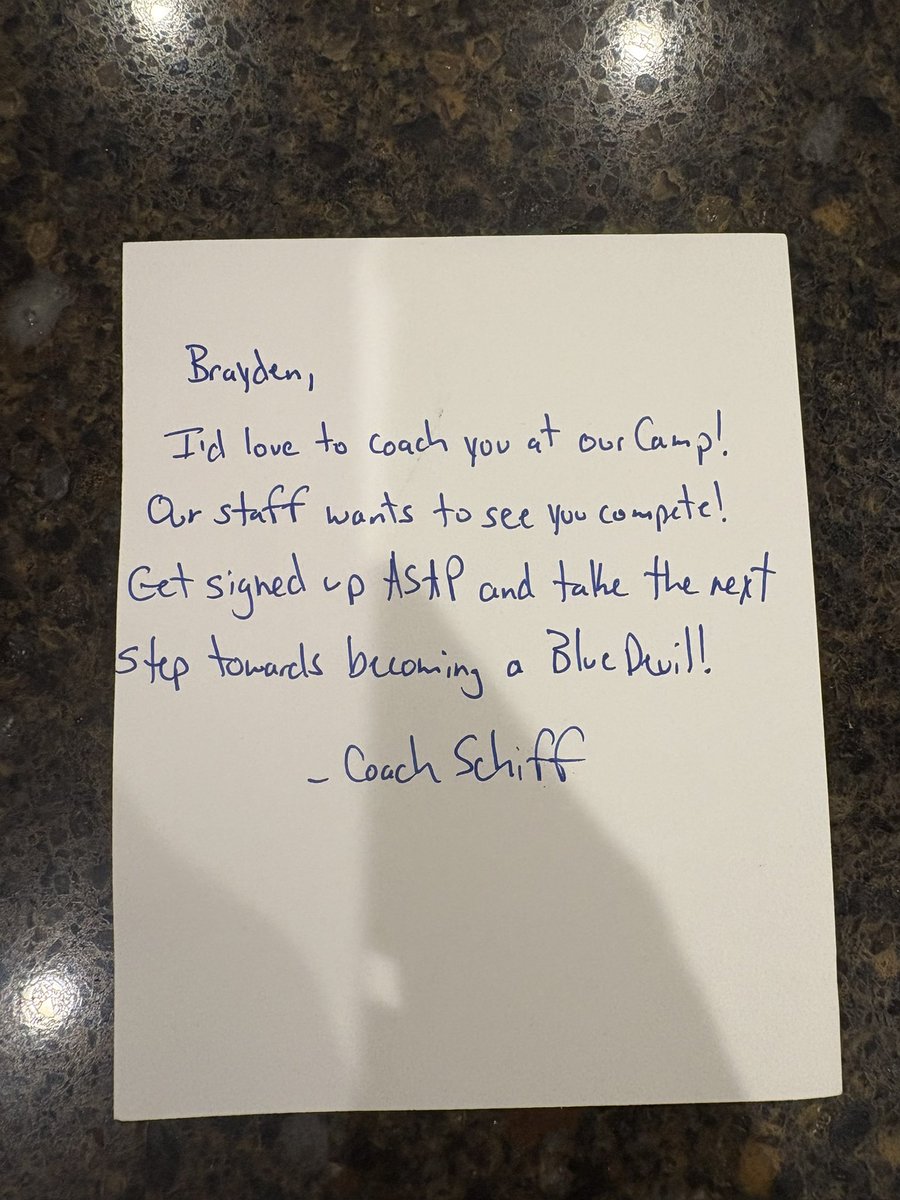 Brayden,
I'd love to coach you at our Camp!
Our staff wants to see you compete!
Get signed up ASAP and take the next
step towards becoming a Blue Devil!
- Coach Schiff